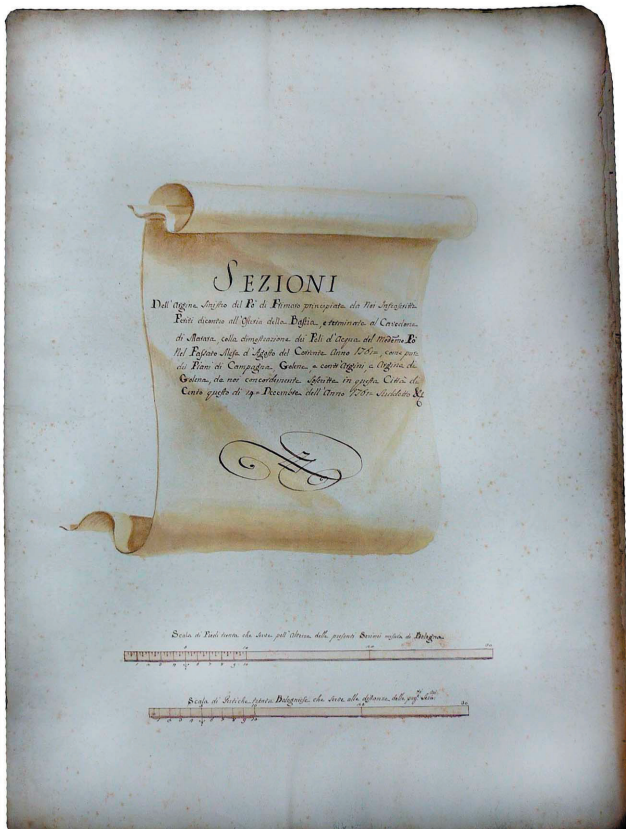 SEZIONI
Dell'Argine Sinistro del Po di Primaro principiate da Noi Infrascritti
Periti dicontro all'Osteria della Bastia, e terminate al
di colla dimostrazione dei Peli d'Acqua del Po
Nel Passato Mese d'Agosto del Corrente Anno come pure
dei Piani di Campagna, Golene, e contr'Argini, e Argini di
Golena, da noi concordemente in questa Città di
Cento questo dì 14 Decembre dell'Anno &c
Scala di Piedi trenta che serve per l'Altezza delle presenti Sezioni misura di Bologna
Scala di Pertiche trenta Bolognesi che serve alle distanze delle